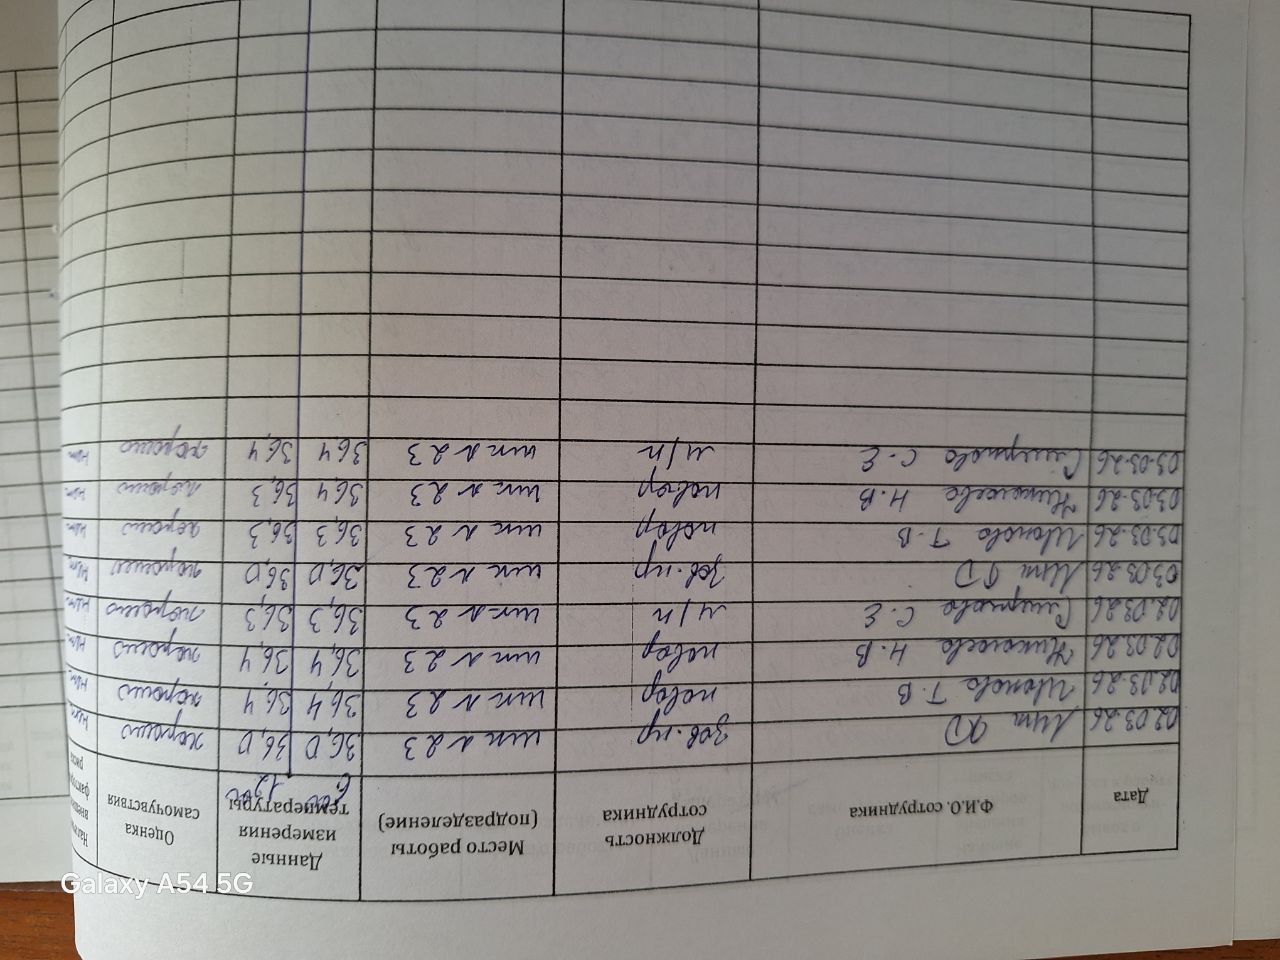 Дата Ф.И.О. сотрудника Должность сотрудника Место работы (подразделение) Данные измерения температуры Оценка самочувствия
6 00 12 00
02.03.26 Лит 36,0 36,0 хорошо нет.
02.03.26 Иванова Т. В повар шк л 23 36,4 36,4 хорошо нет.
02.03.26 Николаева Н. В повар шк л 23 36,4 36,4 хорошо нет.
02.03.26 Смирнова С. Е м/п шк л 23 36,3 36,3 хорошо нет.
03.03.26 Лит зав. пр шк л 23 36,0 36,0 хорошо нет.
03.03.26 Иванова Т. В повар шк л 23 36,3 36,3 хорошо нет.
03.03.26 Николаева Н. В повар шк л 23 36,4 36,3 хорошо нет.
03.03.26 Смирнова С. Е м/п шк л 23 36,4 36,4 хорошо нет.
Galaxy A54 5G